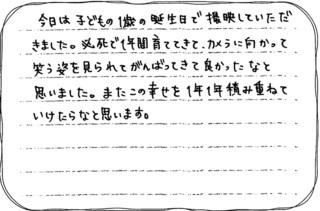 今日は子どもの1歳の誕生日で撮影していただ
きました。必死で1年間育ててきて、カメラに向かって
笑う姿を見られてがんばってきて良かったなと
思いました。またこの幸せを1年1年積み重ねて
いけたらなと思います。